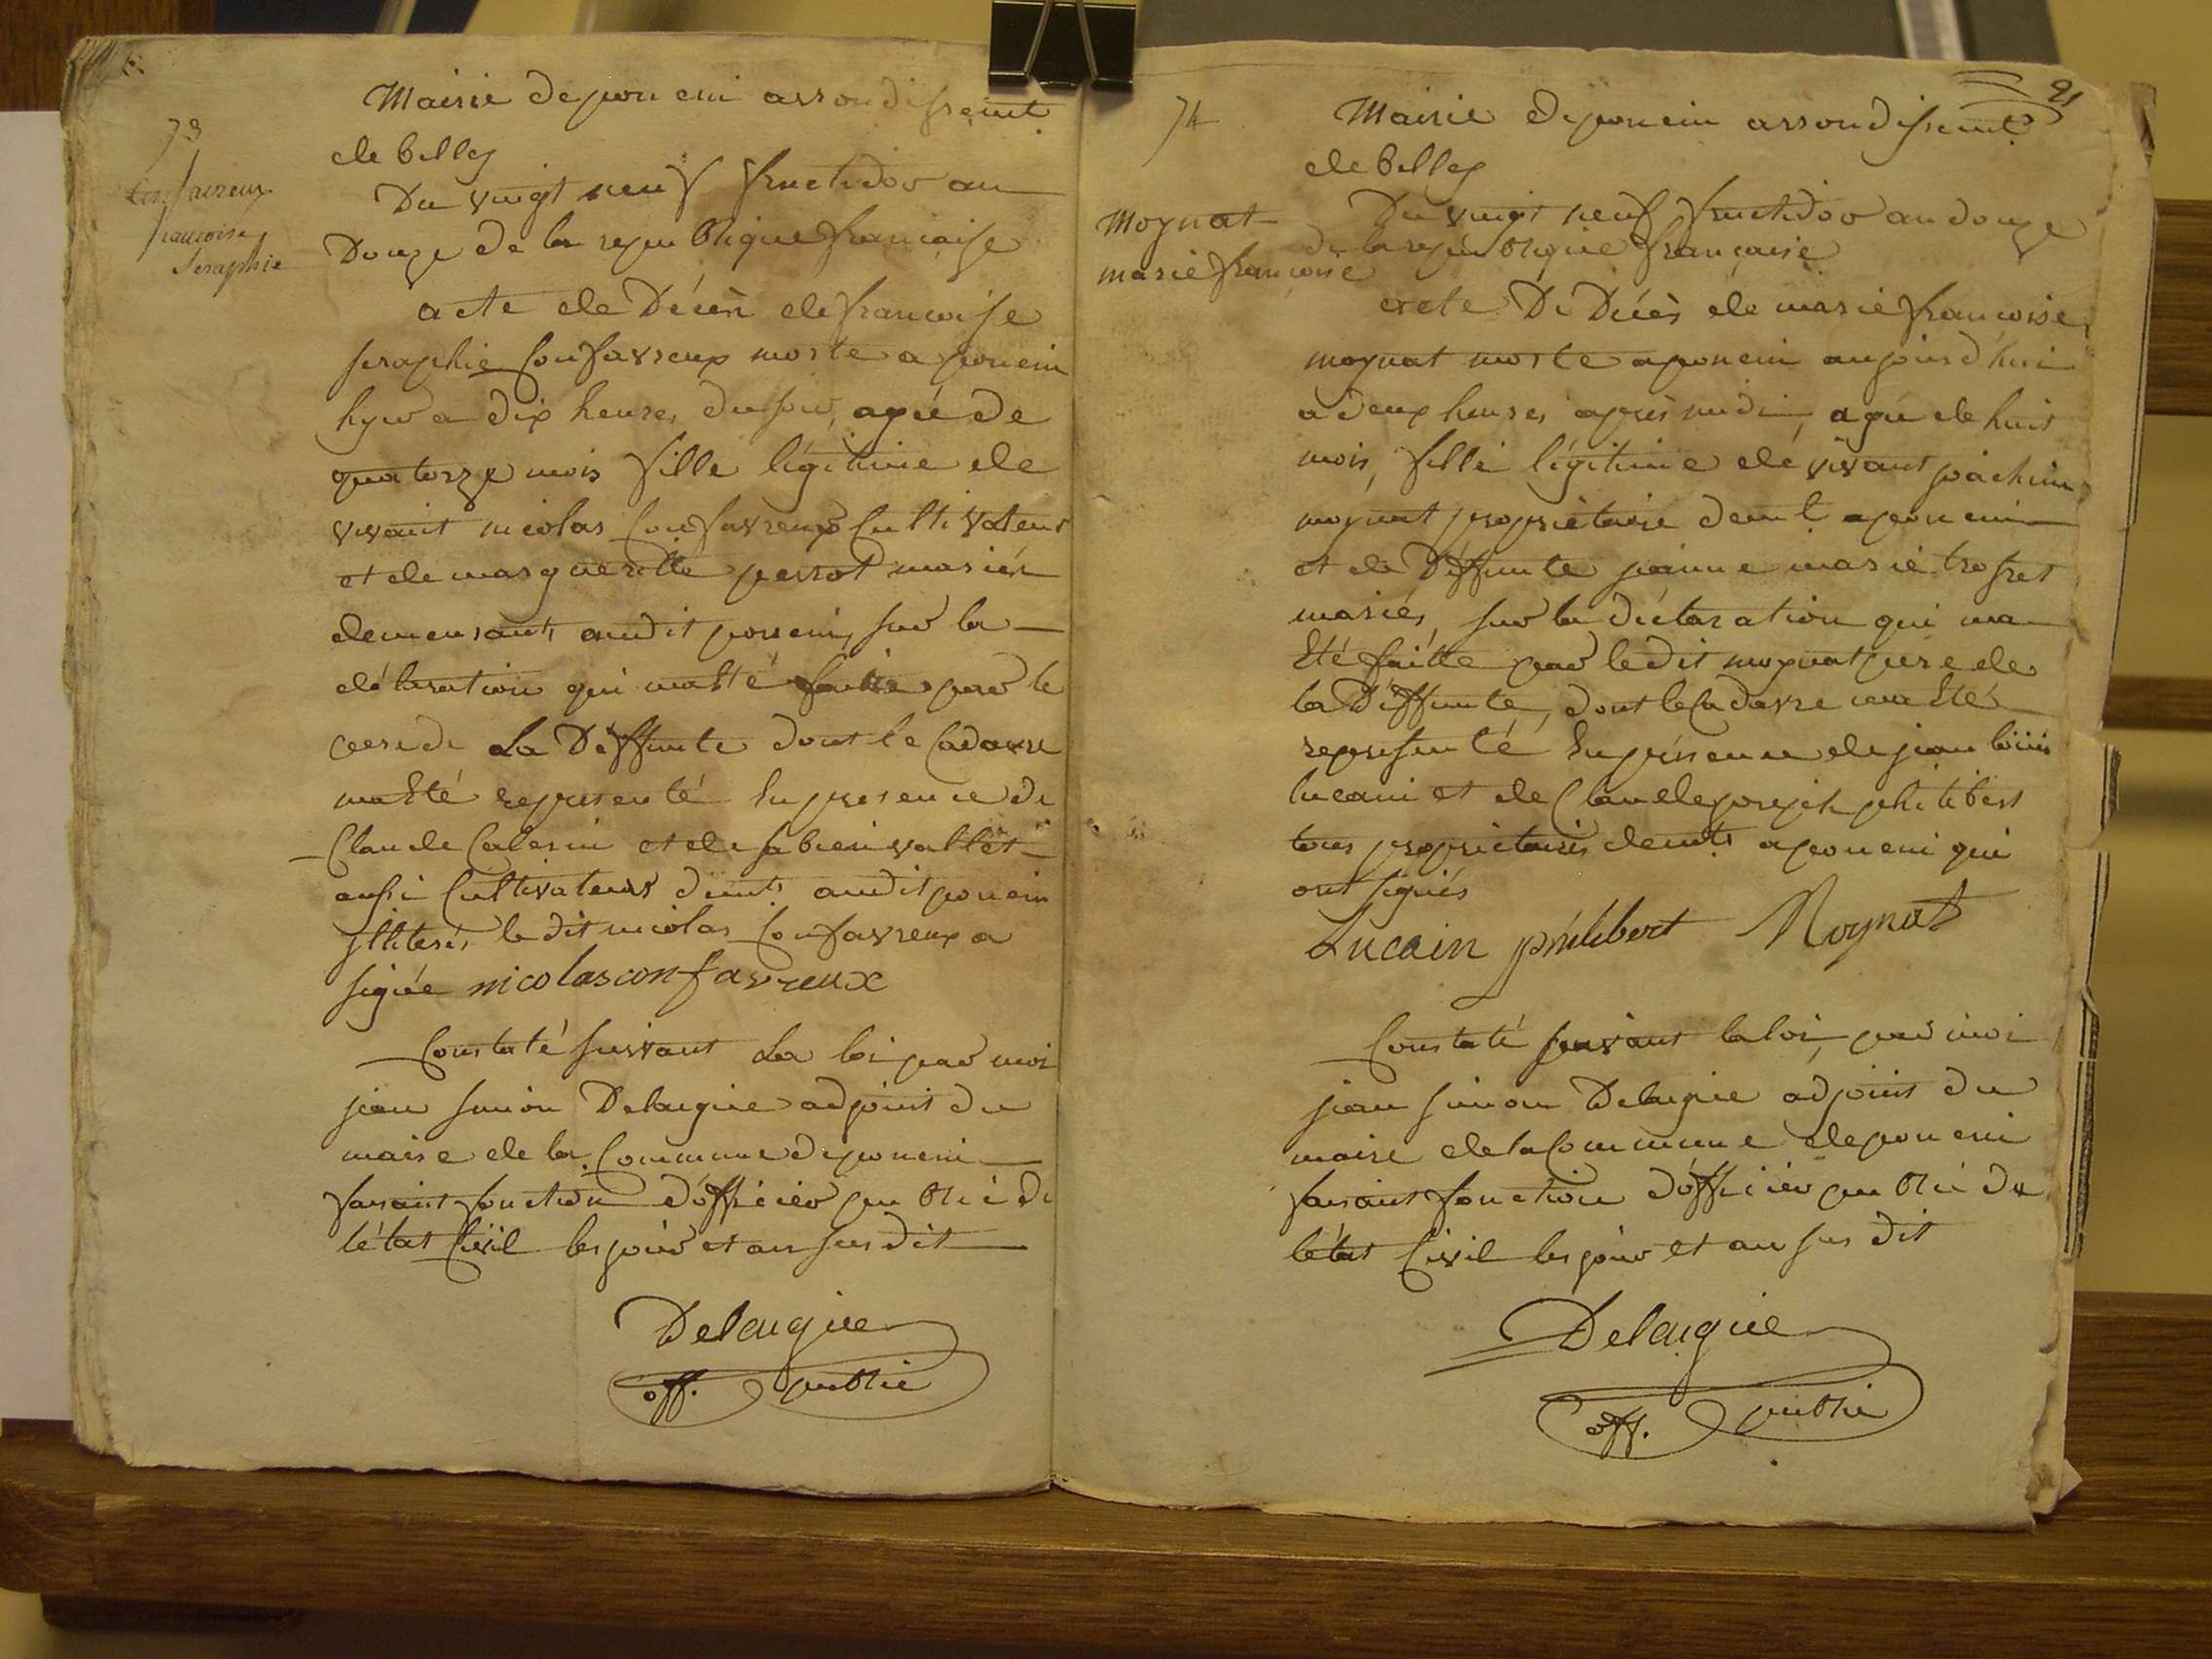 73
Confavreux
françoise
Seraphie
Mairie de poncin arrondissemt
de belley
Du vingt neuf fructidor an
Douze de la republique françaife
acte de Décès de françoife
seraphie Confavreux morte a poncin
hyer a dix heures du soir, agée de
quatorze mois fille légitime de
vivant nicolas Confavreux Cultivateur
et de margueritte perrot mariés
demeurants audit poncin, sur la
déclaration qui ma Eté faitte par le
pere de La Deffunte dont le Cadavre
ma Eté representé En presence de
Claude Calerin et de fabien vallet
aussi Cultivateurs demts audit poncin
illiterés, le dit nicolas Confavreux a
signée nicolas confavreux
Constaté suivant La loi par moi
jean simon Delaigue adjoint du
maire de la Commune de poncin
faisant fonction d'officier public de
l'état Civil les jour et an sus dit
Delaigue
off. public
91
74
Moynat
marie françoise
Mairie de poncin arrondissemt
de belley
Du vingt neuf fructidor an douze
de la republique française
acte De Décès de marie françoise
moynat morte a poncin aujourd'hui
a deux heures après midi, agée de huit
mois, fille légitime de vivant joachim
moynat propriétaire demt a poncin
et de Déffunte jeanne marie trofret
mariés, sur la déclaration qui ma
Eté faitte par ledit moynat pere de
la Déffunte, dont le Cadavre ma Eté
representé En présence de jean loüis
lucain et de Claude joseph philibert
tous propriétaires demts a poncin qui
ont signés
Lucain philibert Moynat
Constaté suivant la loi, par moi
jean simon Delaigue adjoint du
maire de la Commune de poncin
faisant fonction d'officier public de
l'état Civil les jour et an sus dit
Delaigue
off. public